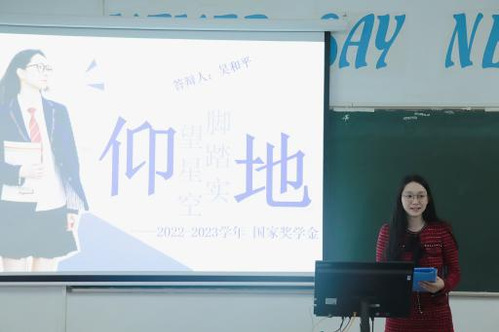 NEVER SAY NE
答辩人：吴和平
仰望星空
脚踏实地
——2022-2023学年 国家奖学金